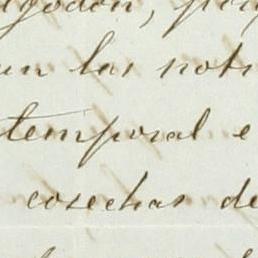 algodon, 
un las noti
temporal e
cosechas de